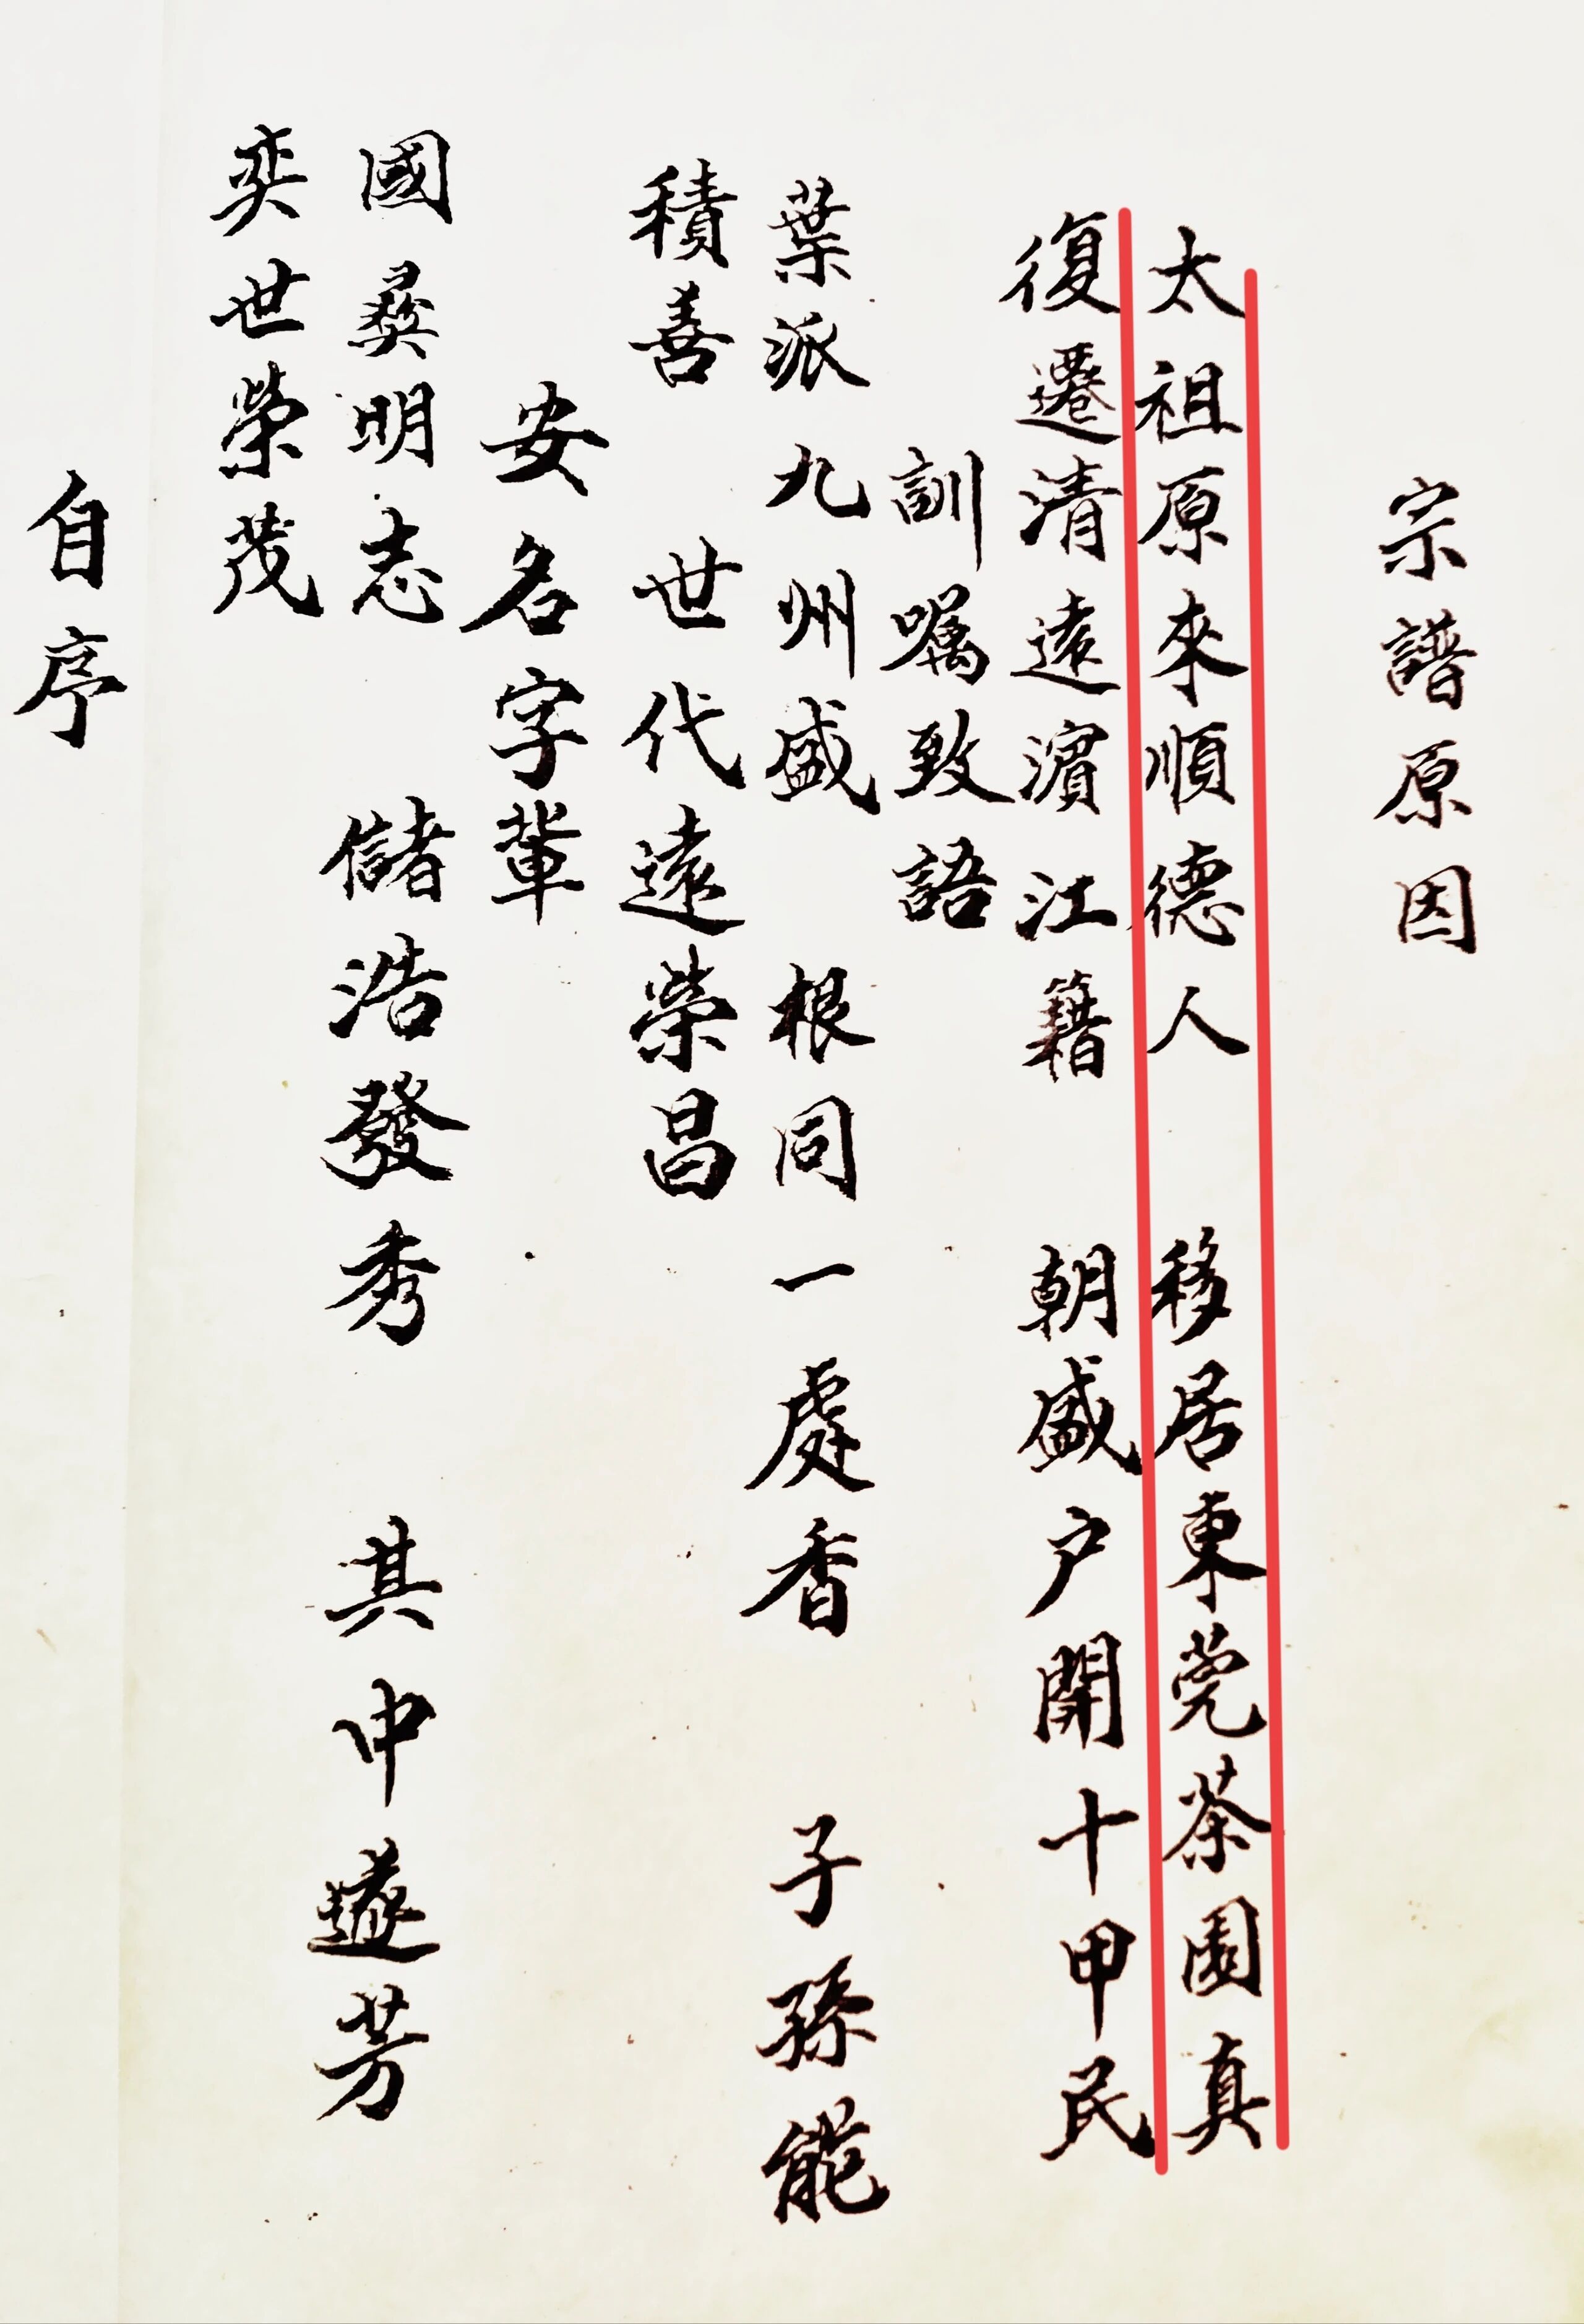 宗譜原因
太祖原來順德人 移居東莞茶園真
復遷清遠濵江籍 朝盛户開十甲民
訓嘱致語
葉派九州盛 根同一處香 子孫能
積善 世代遠榮昌
安名字輩
國彛明志 儲浩發秀 其中遂芳
奕世榮茂
自序